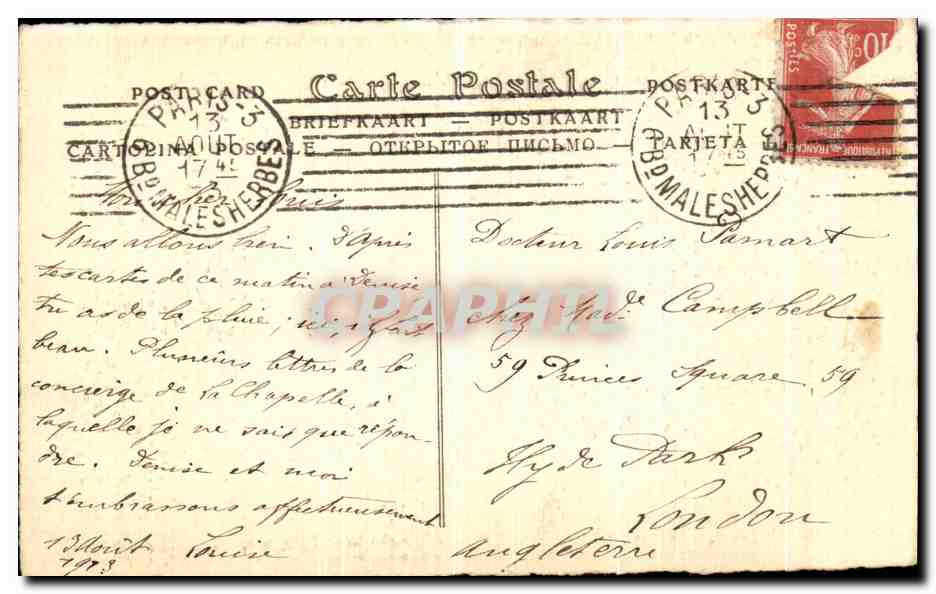 POST CARD Carte Postale POSTKARTE
BRIEFKAART — POSTKAART
CARTOLINA POSTALE — ОТКРЫТОЕ ПИСЬМО — TARJETA
PARIS-3
13
AOUT
17 45
BD MALESHERBES
PARIS-3
13
AOUT
17 45
BD MALESHERBES
10c
POSTES
Mon cher Louis
Nous allons bien. D'après
tes cartes de ce matin à Denise
tu as de la pluie, ici, il fait
beau. Plusieurs lettres de la
concierge de La Chapelle, à
laquelle je ne sais que répon-
dre. Denise et moi
t'embrassons affectueusement
13 Août Louise
1913
Docteur Louis Pamart
chez Made Campbell
59 Princes Square 59
Hyde Park
London
Angleterre
CPAPHIL